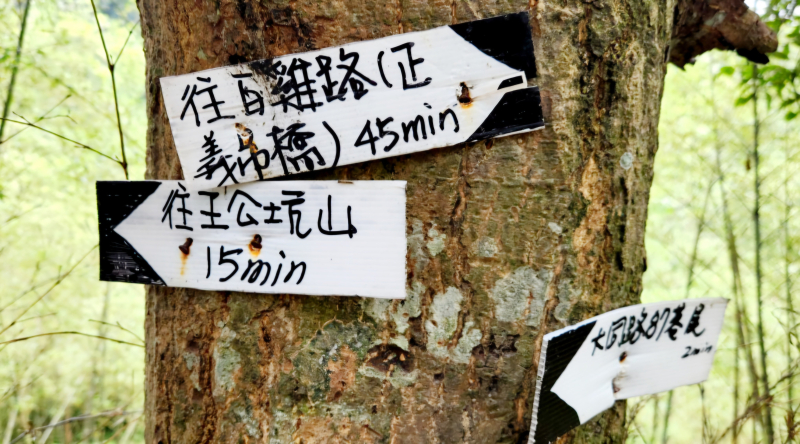 往百雞路(正
義吊橋)45min
往王公坑山
15min
大同路87巷尾
2min